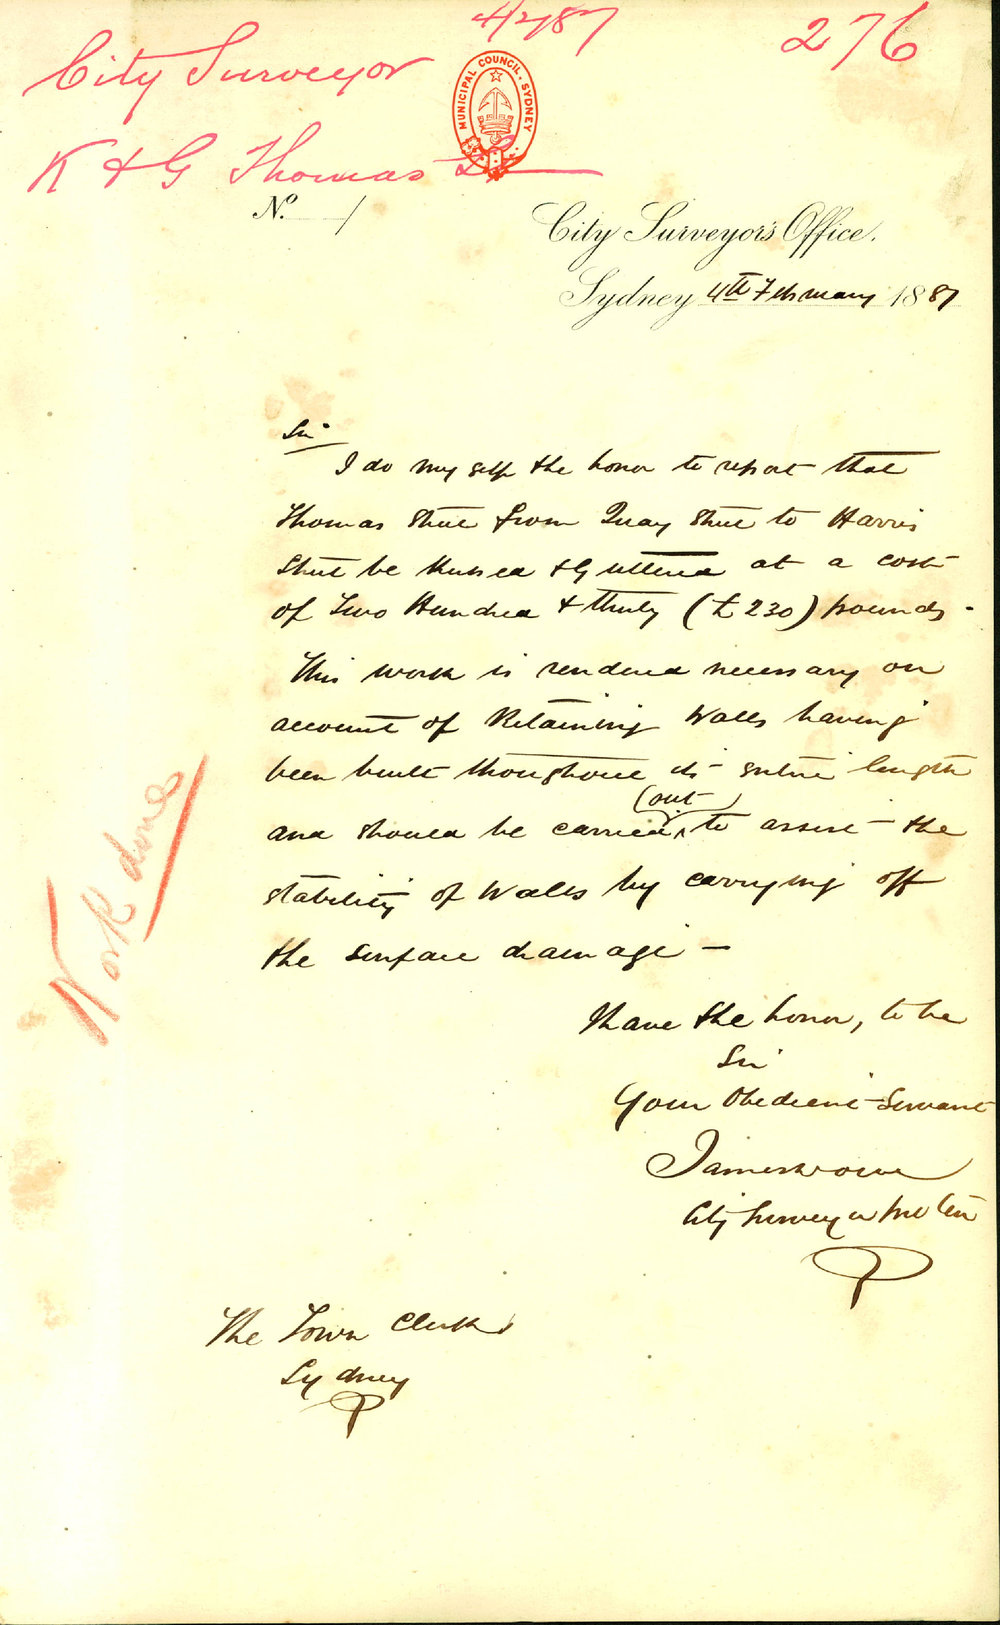 4/2/87
276
City Surveyor
MUNICIPAL COUNCIL. SYDNEY
K & G Thomas St
No. 1
City Surveyor's Office.
Sydney 4th February 1887
Sir
I do my self the honor to report that
Thomas Street from Quay Street to Harris
Street be Kerbed & Guttered at a cost
of Two Hundred & thirty (£230) pounds.
This work is rendered necessary on
account of Retaining Walls having
been built throughout its entire length
and should be carried out to assist the
stability of Walls by carrying off
the surface drainage –
Work done
I have the honor, to be
Sir
Your Obedient Servant
City Surveyor pro tem
The Town Clerk
Sydney